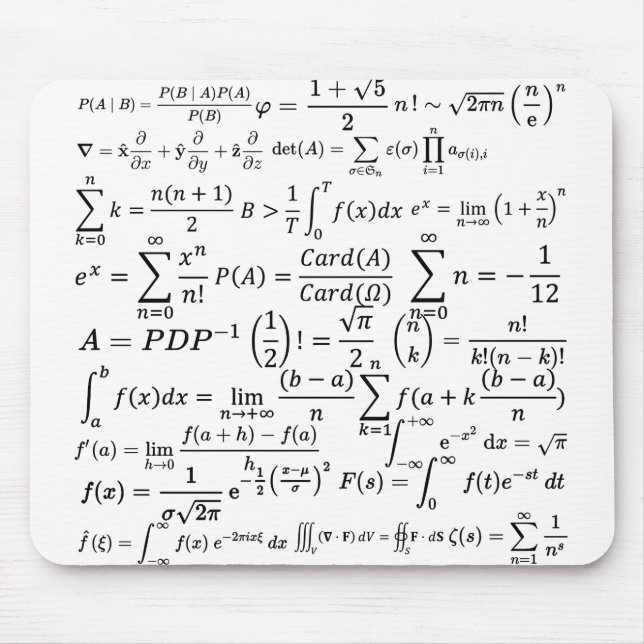 P(A | B) = P(B | A)P(A) / P(B) φ = (1 + √5) / 2 n! ∼ √(2πn) (n/e)^n
∇ = x̂ ∂/∂x + ŷ ∂/∂y + ẑ ∂/∂z det(A) = ∑_{σ∈𝔖_n} ε(σ) ∏_{i=1}^{n} a_{σ(i),i}
∑_{k=0}^{n} k = n(n + 1) / 2 B > 1/T ∫_0^T f(x)dx e^x = lim_{n→∞} (1 + x/n)^n
e^x = ∑_{n=0}^{∞} x^n / n! P(A) = Card(A) / Card(Ω) ∑_{n=0}^{∞} n = − 1/12
A = PDP^{−1} (1/2)! = √π / 2 (n k) = n! / k!(n − k)!
∫_a^b f(x)dx = lim_{n→+∞} (b − a)/n ∑_{k=1}^{n} f(a + k (b − a)/n)
f′(a) = lim_{h→0} (f(a + h) − f(a)) / h ∫_{−∞}^{+∞} e^{−x^2} dx = √π
f(x) = 1 / (σ√(2π)) e^{−1/2 ((x−μ)/σ)^2} F(s) = ∫_0^∞ f(t)e^{−st} dt
f̂(ξ) = ∫_{−∞}^{∞} f(x) e^{−2πixξ} dx ∭_V (∇ · F) dV = ∯_S F · dS ζ(s) = ∑_{n=1}^{∞} 1/n^s